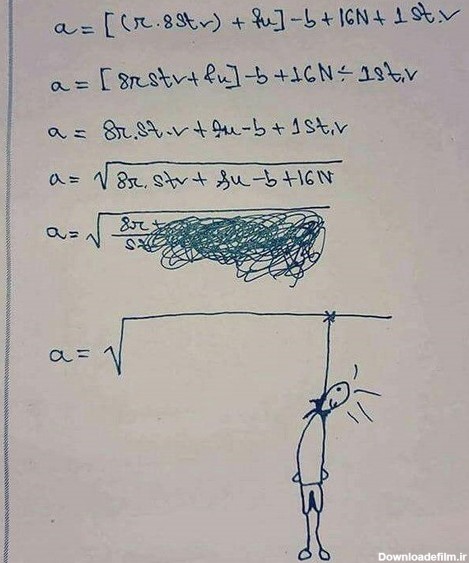 a = [(r.8stv) + fu] - b + 16N + 1st.v
a = [8r stv + fu] - b + 16N ÷ 1st.v
a = 8r.st.v + fu - b + 1st.v
a = √8r.stv + fu - b + 16N
a = √8r
a = √
Downloadefilm.ir